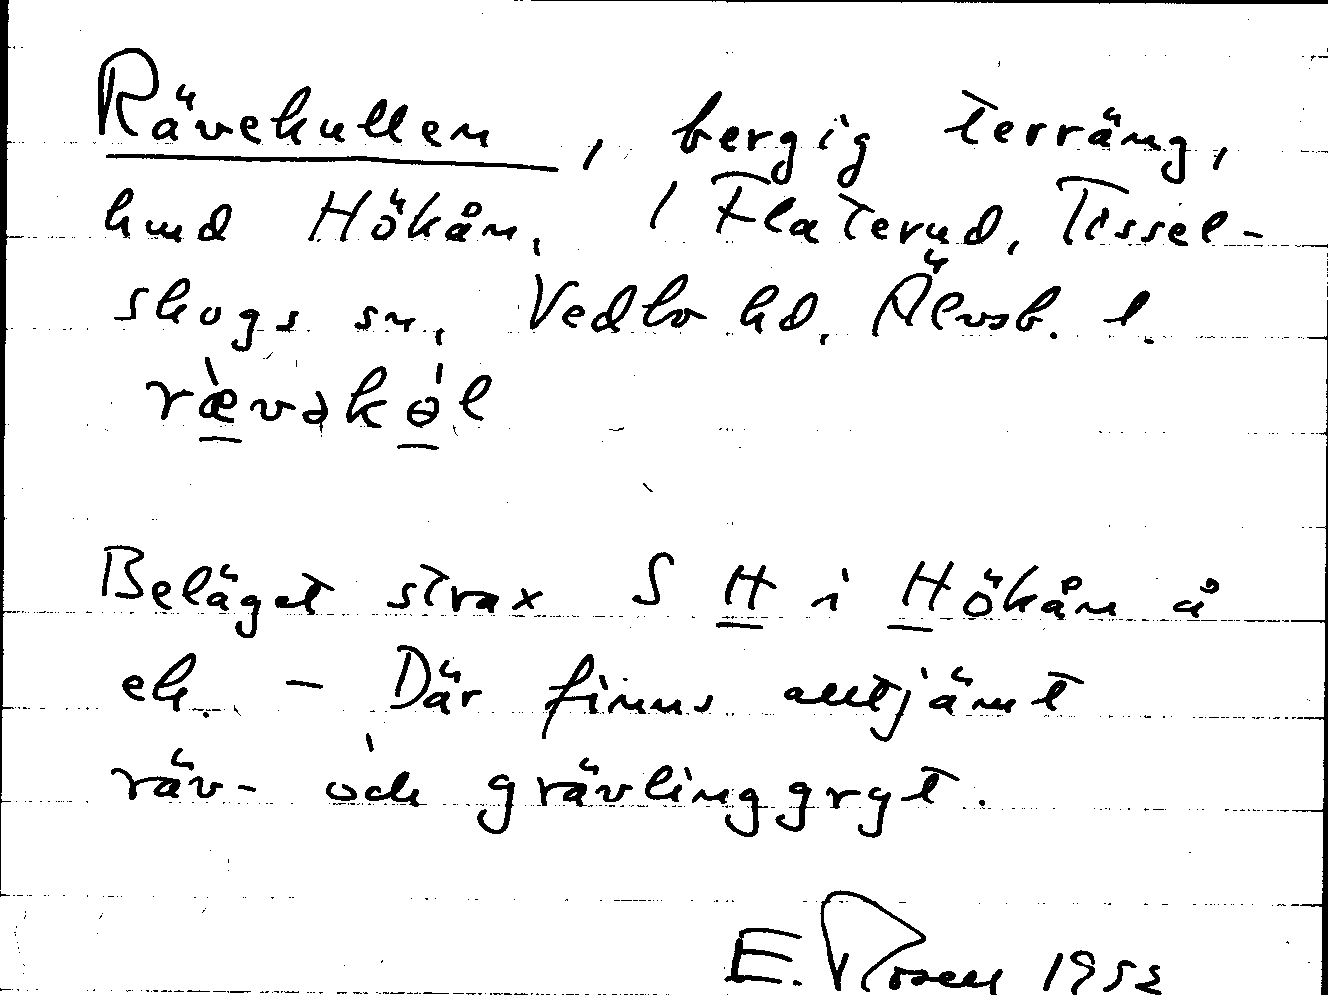 Rävekullen, bergig terräng,
hmd Hökån, i Flaterud, Tissel-
skogs sn, Vedbo hd, Älvsb. l.
ræ̀vəkɵ́l
Beläget strax S H i Hökån å
ek. – Där finns alltjämt
räv- och grävlinggryt.
E. Rosell 1952